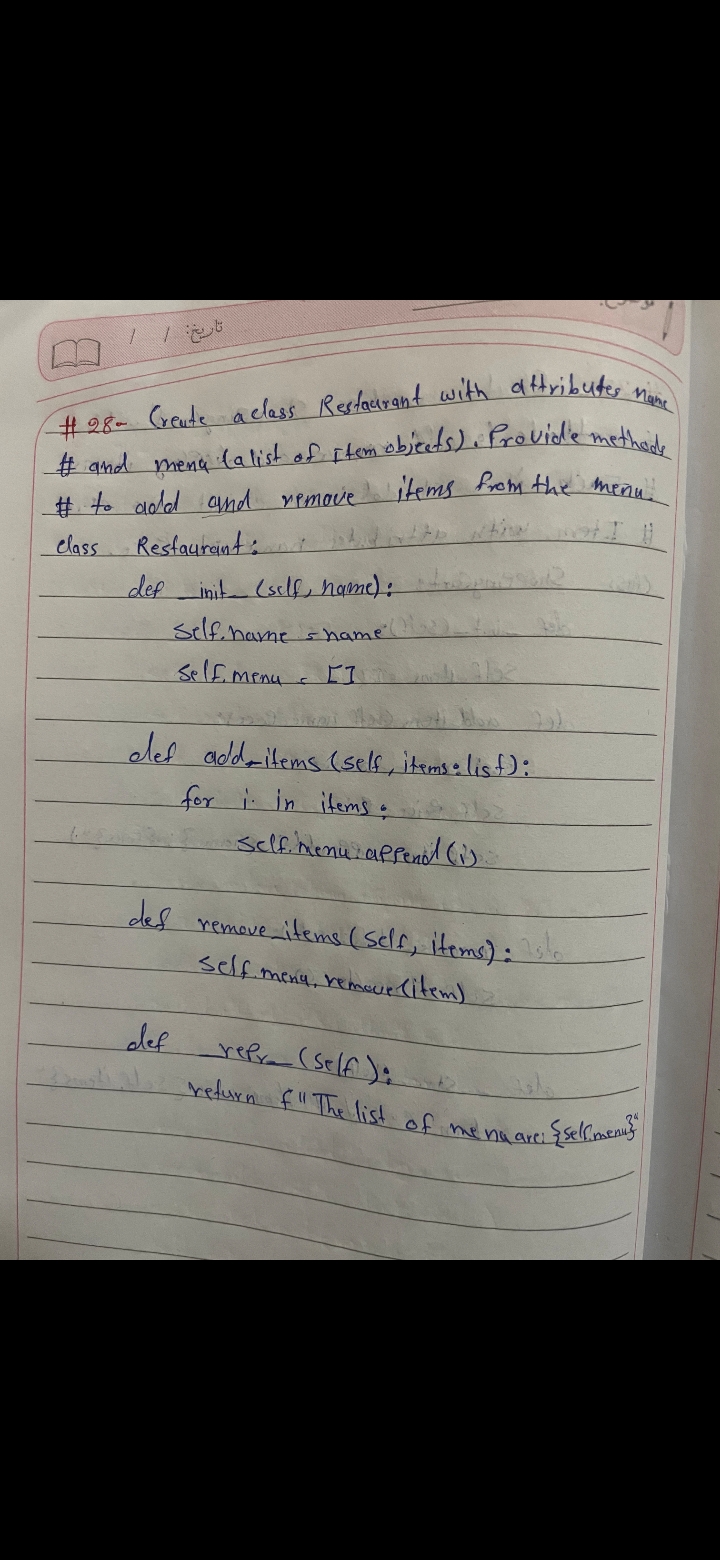 تاريخ: / /
# 28- Create a class Restaurant with attributes name
# and menu (a list of Item objects). Provide methods
# to add and remove items from the menu.
class Restaurant:
def _init_ (self, name):
self.name = name
self.menu = []
def add_items (self, items: list):
for i in items:
self.menu.append(i)
def remove_items (self, items):
self.menu.remove(item)
def _repr_ (self):
return f"The list of menu are: {self.menu}"